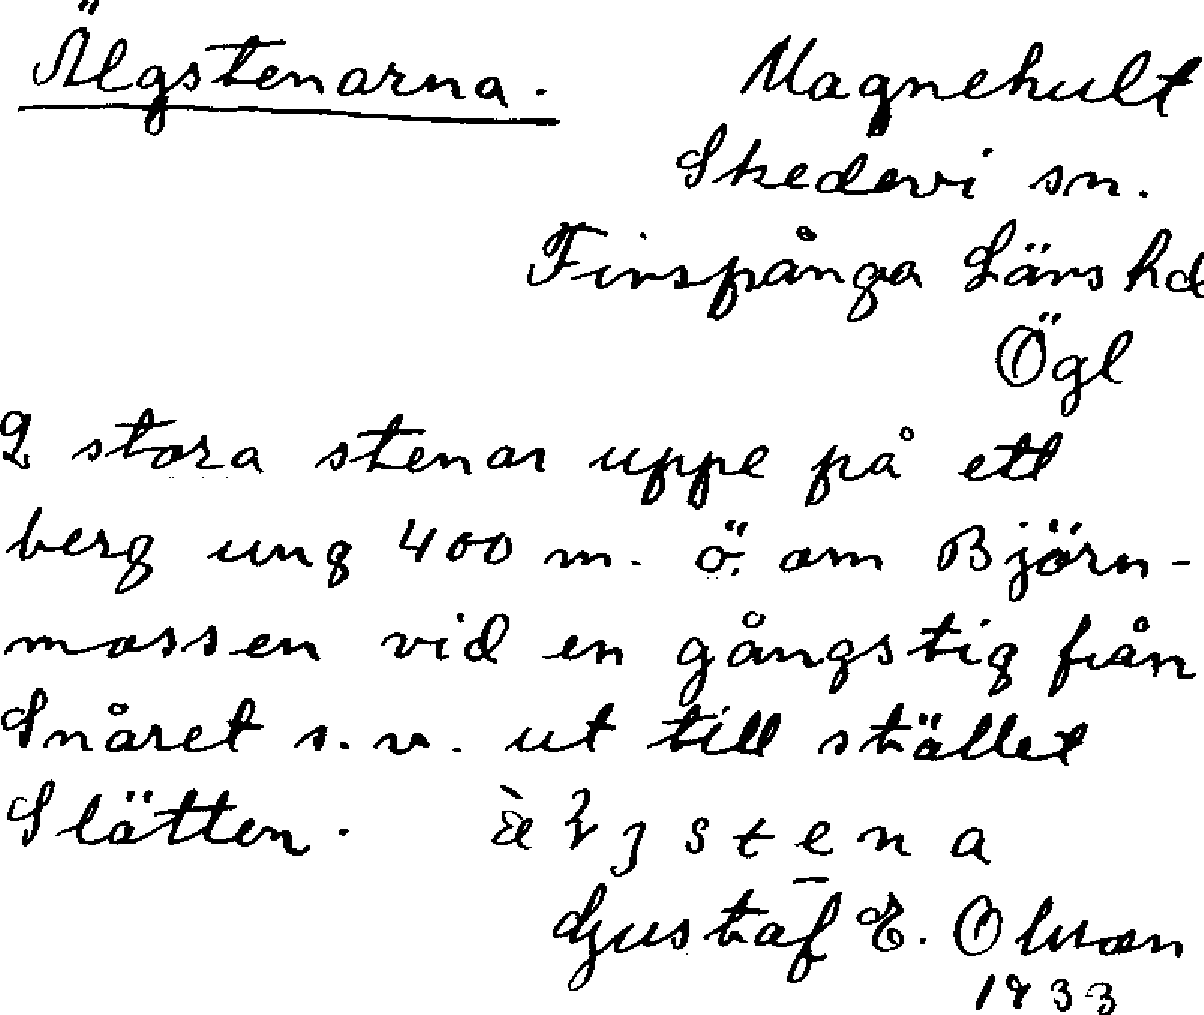 Älgstenarna. Magnehult
Skedevi sn.
Finspånga Läns hd
Ögl
2 stora stenar uppe på ett
berg ung 400 m. ö. om Björn-
mossen vid en gångstig från
Snåret s.v. ut till stället
Slätten.
Gustaf E. Olsson
1933